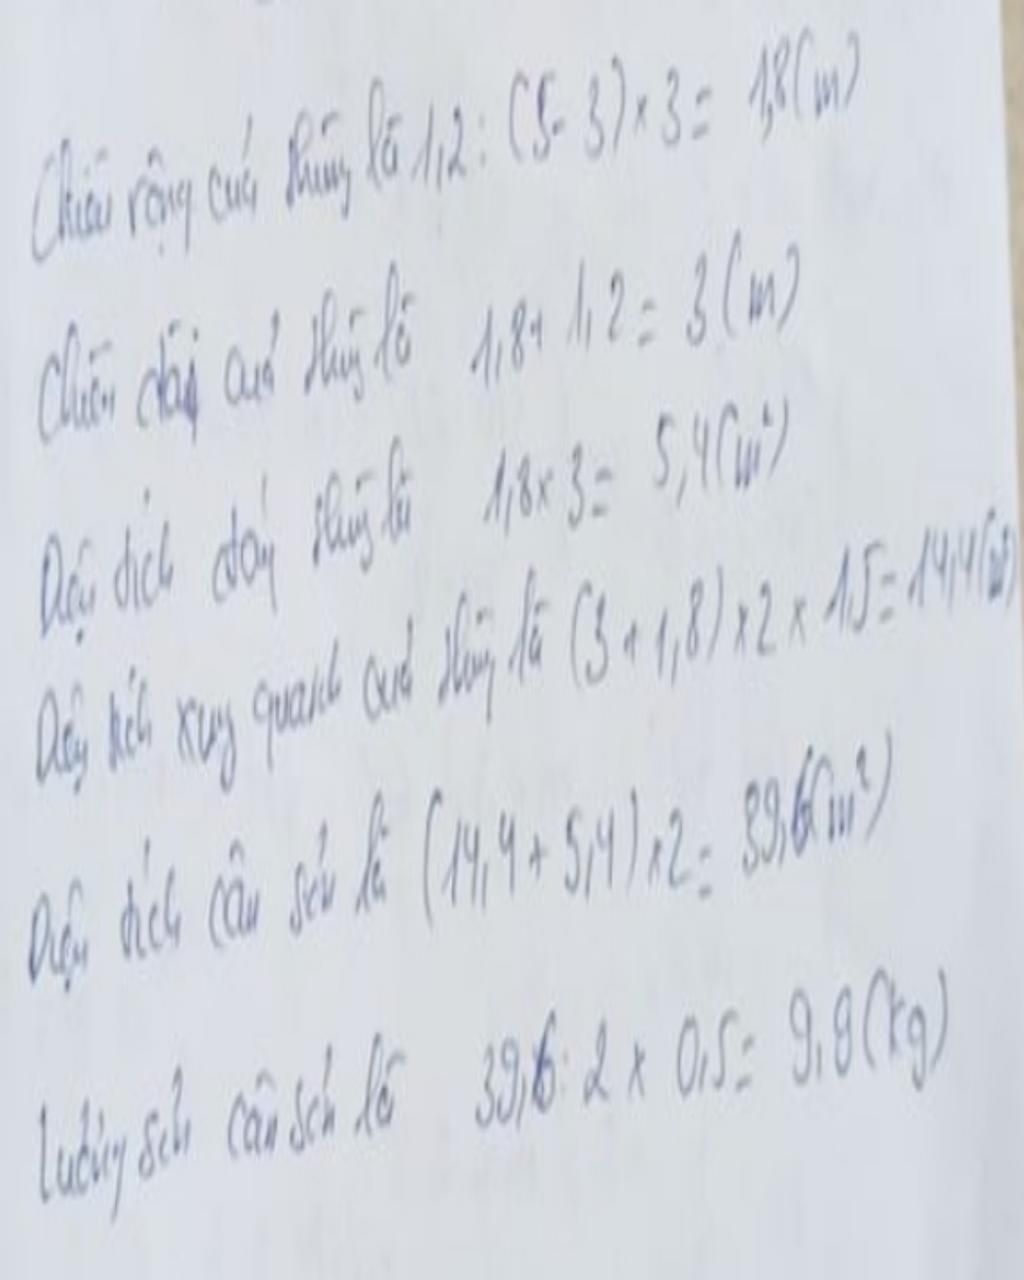 Chiều rộng của thùng là 1,2 : (5 - 3) × 3 = 1,8 (m)
Chiều dài của thùng là 1,8 + 1,2 = 3 (m)
Diện tích đáy thùng là 1,8 × 3 = 5,4 (m²)
Diện tích xung quanh của thùng là (3 + 1,8) × 2 × 1,5 = 14,4 (m²)
Diện tích cần sơn là (14,4 + 5,4) × 2 = 39,6 (m²)
Lượng sơn cần sơn là 39,6 : 2 × 0,5 = 9,9 (kg)